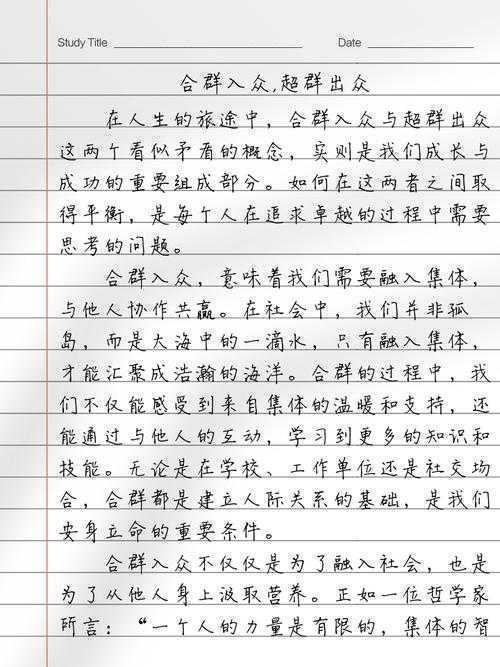 Study Title Date
合群入众,超群出众
在人生的旅途中，合群入众与超群出众
这两个看似矛盾的概念，实则是我们成长与
成功的重要组成部分。如何在这两者之间取
得平衡，是每个人在追求卓越的过程中需要
思考的问题。
合群入众，意味着我们需要融入集体，
与他人协作共赢。在社会中，我们并非孤
岛，而是大海中的一滴水，只有融入集体，
才能汇聚成浩瀚的海洋。合群的过程中，我
们不仅能感受到来自集体的温暖和支持，还
能通过与他人的互动，学习到更多的知识和
技能。无论是在学校、工作单位还是社交场
合，合群都是建立人际关系的基础，是我们
安身立命的重要条件。
合群入众不仅仅是为了融入社会，也是
为了从他人身上汲取营养。正如一位哲学家
所言：“一个人的力量是有限的，集体的智